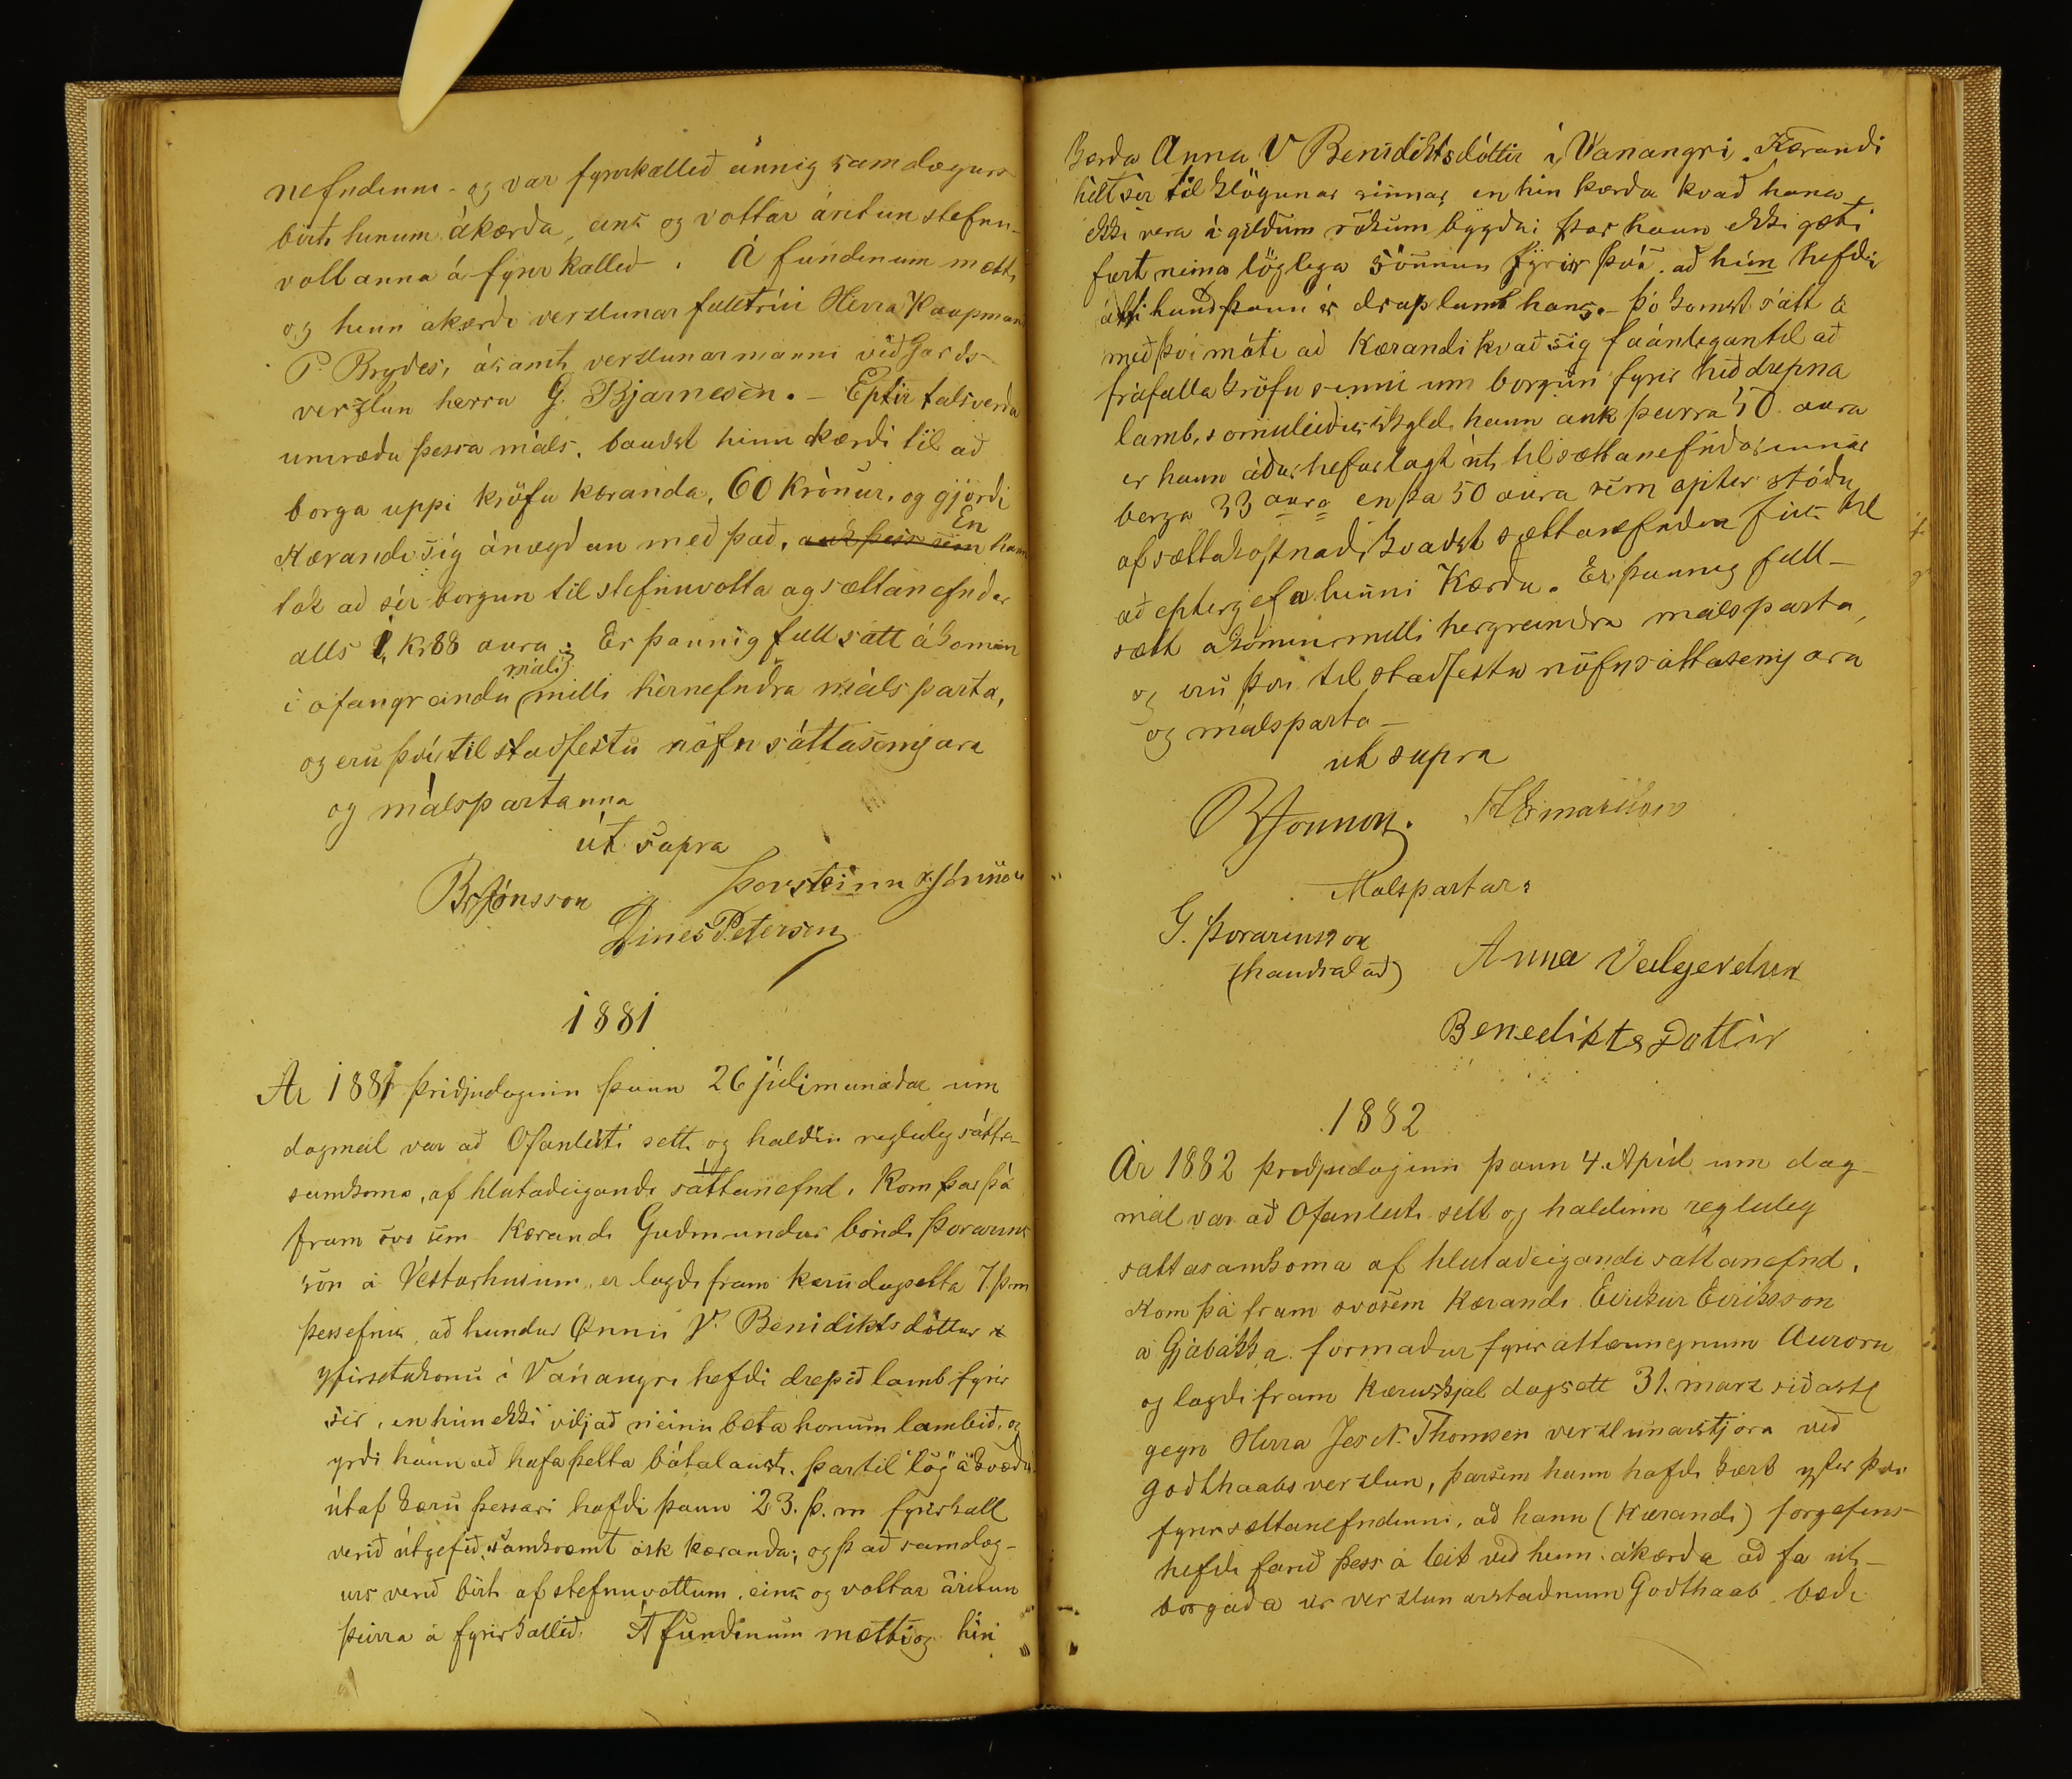 nefndinni - og var fyrirkallið einnig samdægurs
birt hinum ákærða, eins og vottar áritun stefnu-
vottanna á fyrirkallið. Á fundinum mætti
og hinn ákærði verzlunar fulltrúi Herra Kaupmans
P. Brydes, ásamt verzlunarmanni við Gards
verzlun herra G. Bjarnesen. - Eptir talsverða
umræðu þessa máls, bauðst hinn kærði til að
borga uppi kröfu kæranda, 60 Krónur, og gjörði
Kærandi sig ánægðan með það, auk þess sem En hann
tók að sér borgun til stefnuvotta og sættanefndar
alls 1, Kr 88 aura; Er þannig full sátt ákomin
í ofangreindu máli milli hérnefndra málsparta,
og eru því til staðfestu nöfn sáttasemjara
og málspartanna
út supra
Br Jónsson Þorsteinn Jónsson
Dines Petersen
1881
Ár 1881 þriðjudaginn þann 26 júlimánaðar um
dagmál var að Ofanleiti sett og haldin regluleg sátta-
samkoma, af hlutaðeigandi sáttanefnd. Kom þar þá
fram svo sem Kærandi Guðmundur bóndi Þorarins
son á Vesturhúsum, er lagði fram kæru dagsetta 7. þ.m
þess efnis, að hundur Önnu V. Benidiktsdóttur
yfirsetukonu í Vanangri hefði drepið lamb fyrir
sér, en hún ekki viljað neinu bæta honum lambið, og
yrði hann að hafa þetta bótalaust, þar til lög ákvæðu
útaf kæru þessari hafði þann 23. þ. m fyrirkall
verið útgefið, samkvæmt ósk kæranda; og það samdæg-
urs verið birt af stefnuvottum, eins og vottar áritun
þeirra á fyrirkallið. Á fundinum mætti og hin
kærða Anna V Benidiktsdóttir í Vanangri. Kærandi
hélt sér til klögunar sinnar, en hin kærða kvað hana
ekki vera á gildum rökum byggða; þar hann ekki gæti
fært neina löglega sönnun fyrir því að hún hefði
átt hund þann er drap lamb hans. - Þó komst sátt á
með því móti að Kærandi kvað sig fáanlegan til að
fráfalla kröfu sinni um borgun fyrir hið drepna
lamb, sömuleiðis skyldi hann auk þeirra 50 aura
er hann áður hefur lagt út, til sættanefndarinnar
borga 33 aura en þa 50 aura sem eptir stóðu
af sættakostnaði kvaðst sættanefndin fús til
að eptirgefa hinni Kærðu. Er þannig full-
sætt ákomin milli hérgreindra málsparta,
og eru því til staðfestu nöfn sáttasemjara
og málsparta -
ut supra
Br Jónsson.
Malspartar:
G. Þorarinsson
(handsalað) Anna Valgerdur
Benedikts Dottir
1882
Ár 1882 þriðjudaginn þann 4. Apríl um dag-
mál var að Ofanleiti sett og haldinn regluleg
sáttasamkoma af hlutaðeigandi sáttanefnd.
Kom þá fram svosem Kærandi Eirikur Eiriksson
á Gjábakka formaður fyrir áttæringnum Aurora
og lagði fram Kæruskjal dagsett 31. marz siðastl
gegn Herra Jes N. Thomsen verzlunarstjóra við
Godthaabs verzlun, þarsem hann hafði kært yfir því
fyrir sættanefndinni, að hann (Kærandi) forgefins
hefði farið þess á leit við hinn ákærða að fá út-
borgaða úr verzlunarstaðnum Godthaab bæði